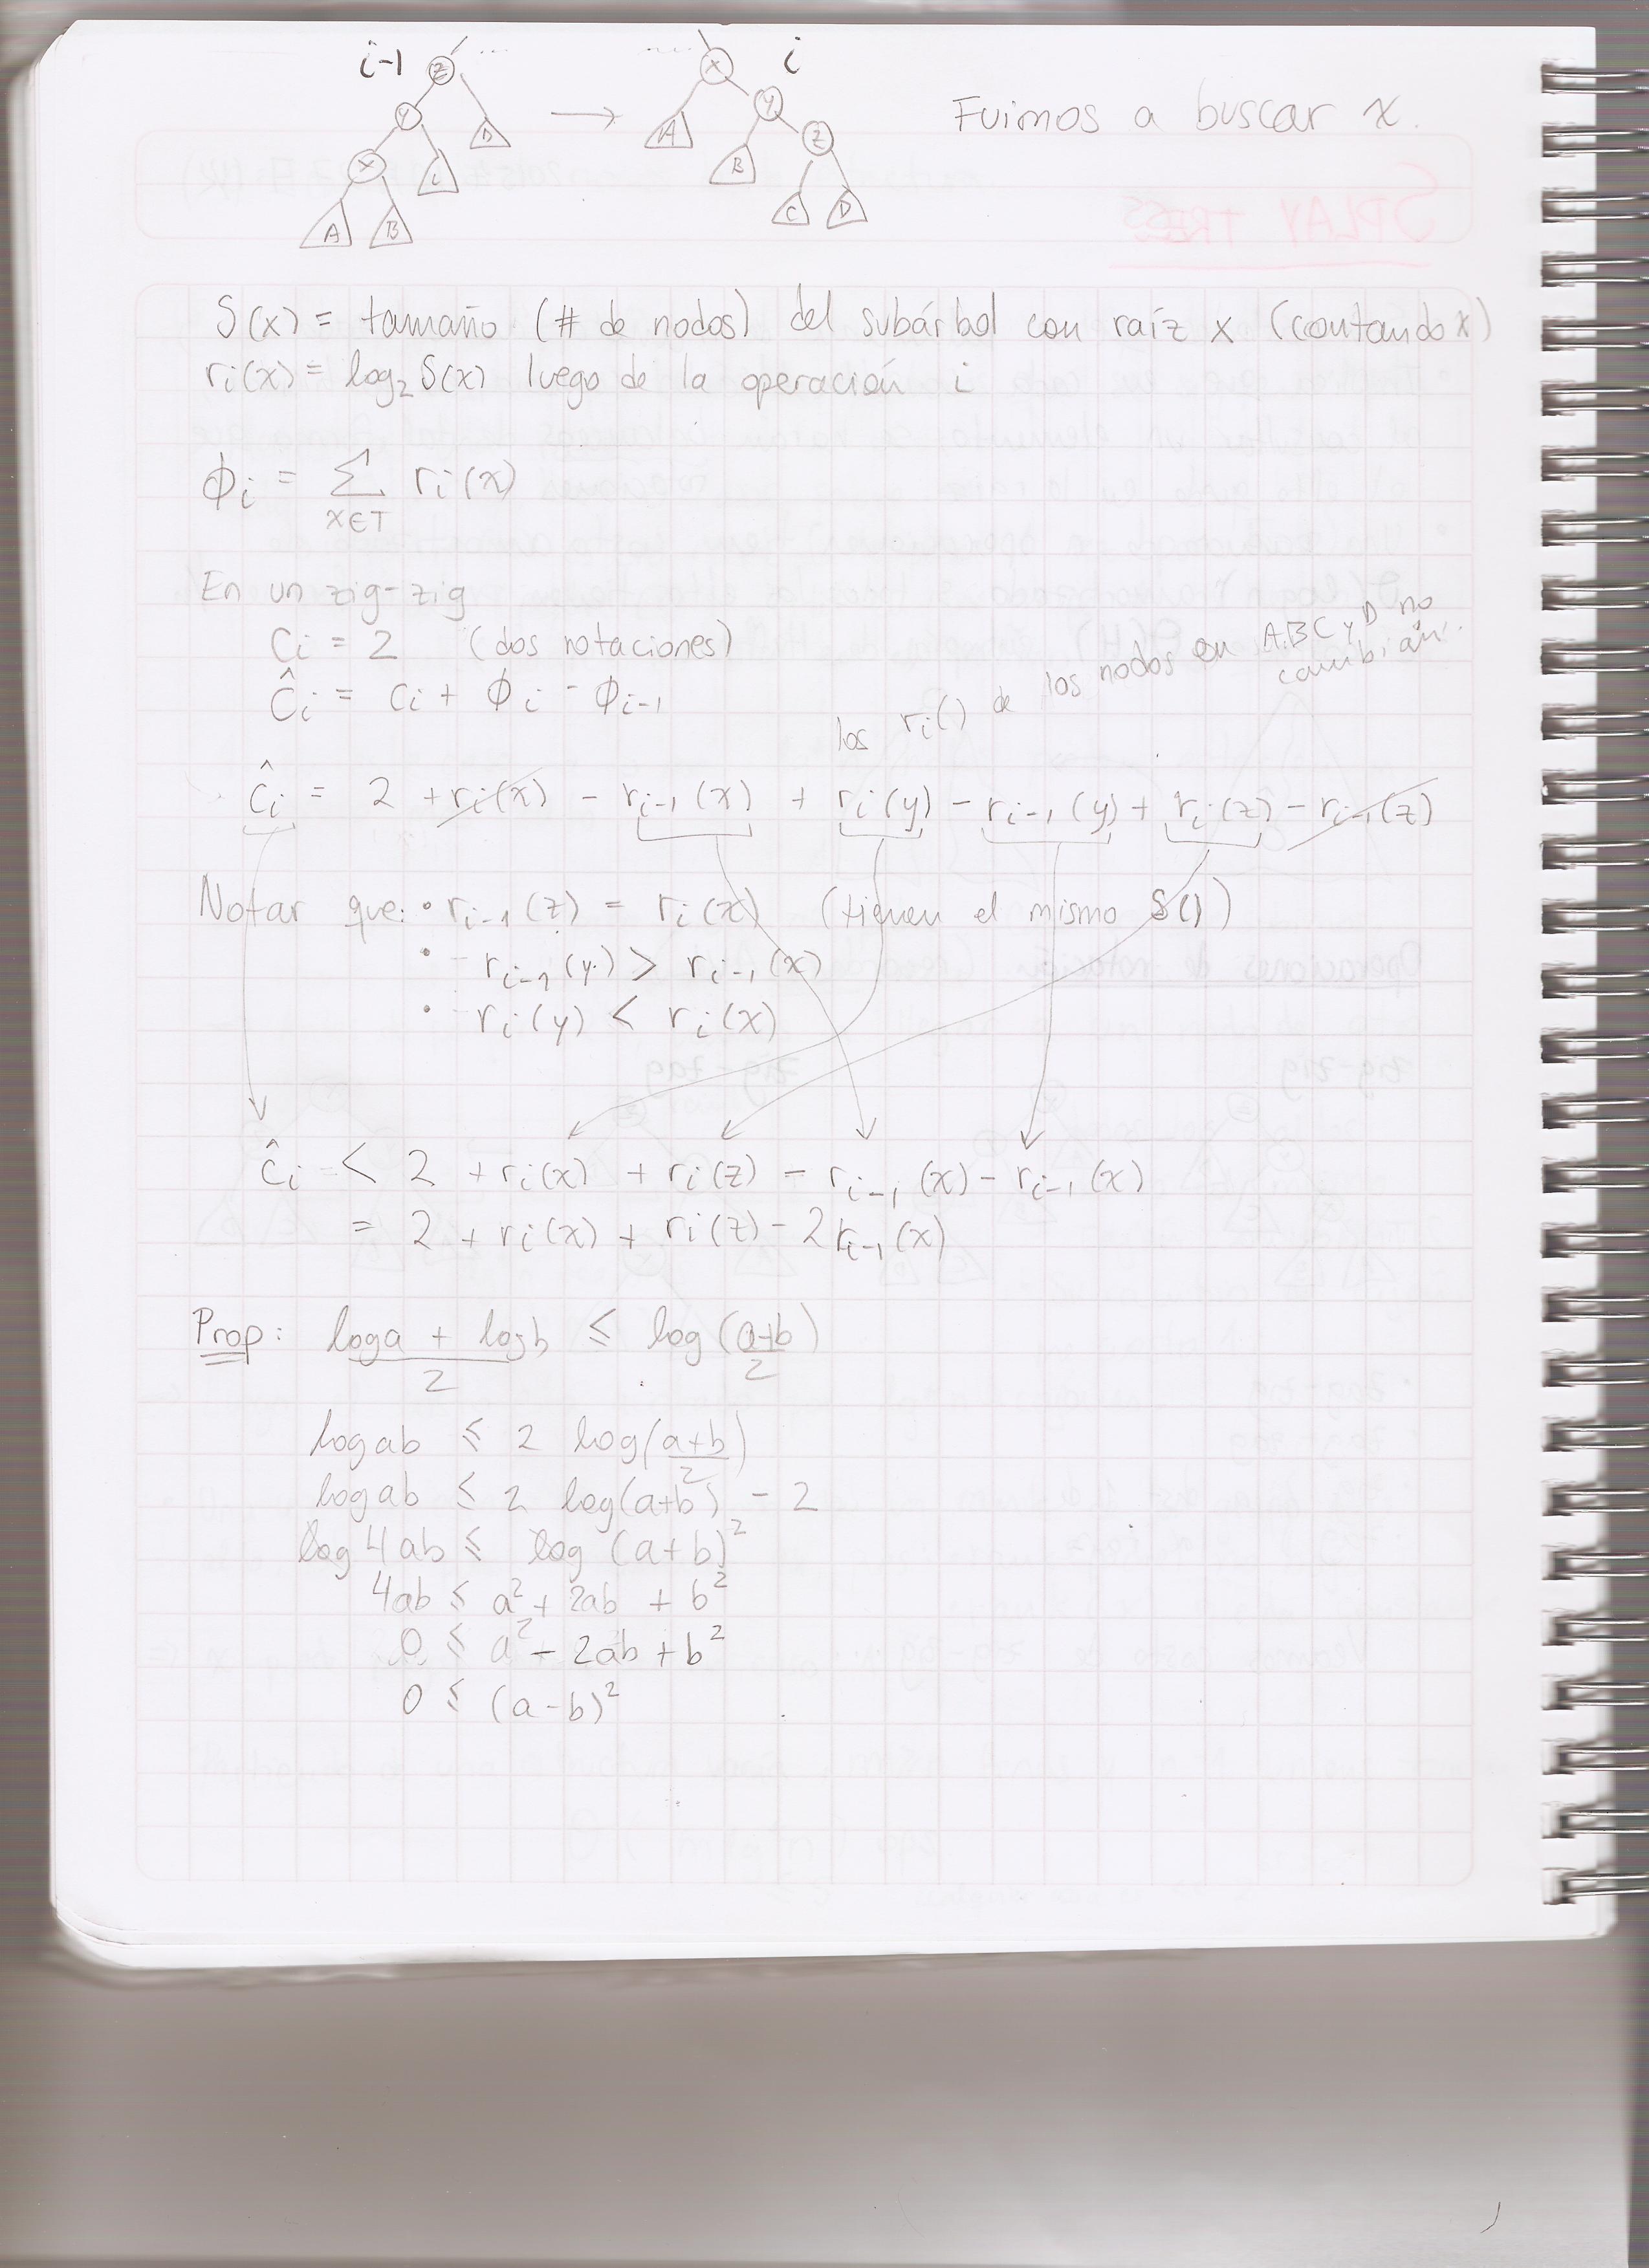 i-1 z ... ..... x i
y y Fuimos a buscar x.
x C D A B z
A B C D
S(x) = tamaño (# de nodos) del subárbol con raíz x (contando x)
ri(x) = log₂ S(x) luego de la operación i
ϕi = Σ ri(x)
x∈T
En un zig-zig
Ci = 2 (dos rotaciones)
Ĉi = ci + ϕi - ϕi-1
los ri() de los nodos en A,B,C y D no cambian.
ĉi = 2 + ri(x) - ri-1(x) + ri(y) - ri-1(y) + ri(z) - ri-1(z)
Notar que: • ri-1(z) = ri(x) (tienen el mismo S())
• ri-1(y) > ri-1(x)
• ri(y) < ri(x)
ĉi < 2 + ri(x) + ri(z) - ri-1(x) - ri-1(x)
= 2 + ri(x) + ri(z) - 2ri-1(x)
Prop: (log a + log b)/2 ≤ log((a+b)/2)
log ab ≤ 2 log((a+b)/2)
log ab ≤ 2 log(a+b) - 2
log 4ab ≤ log (a+b)²
4ab ≤ a² + 2ab + b²
0 ≤ a² - 2ab + b²
0 ≤ (a-b)²
SPLAY TREES
Operaciones de rotación
zig-zig zig-zag